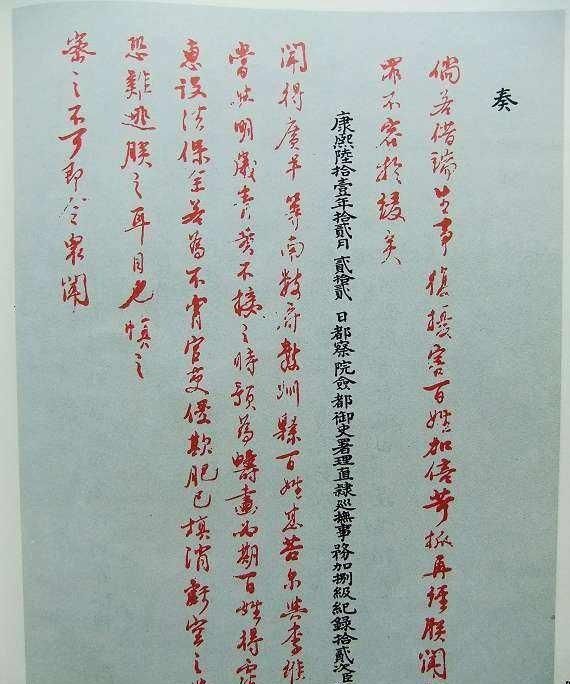 奏
倘若借端生事復擾害百姓加倍苛派再經朕聞
罪不容於緩矣
康熙陸拾壹年拾貳月貳拾貳日都察院僉都御史署理直隸巡撫事務加捌級紀錄拾貳次臣
聞得廣平等南數府數州縣百姓甚苦尔與李維
當此明歲青黃不接之時預為疇畫為期百姓得
惠設法保全若為不肖官吏侵欺肥己填消虧空之
恐難逃朕之耳目也慎之
密之不可即令眾聞